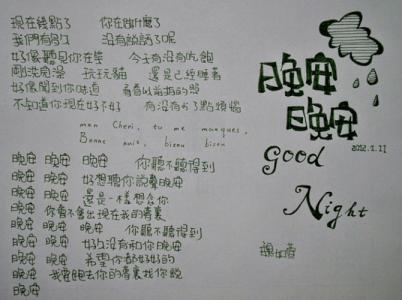 現在幾點了 你在做什麼了
我們有多久 沒有說話了呢
好像聽見你在笑 今天有沒有吃飽
剛洗完澡 玩玩貓 還是已經睡著
好像聞到你味道 看看以前拍的照
不知道你現在好不好 有沒有少了點煩惱
mon Cheri, tu me manques,
Bonne nuit, bisou bisou
晚安 晚安 晚安 你聽不聽得到
晚安 晚安 好想聽你說聲晚安
晚安 晚安 還是一樣想念你
晚安 你會不會出現在我的夢裏
晚安 晚安 晚安 你聽不聽得到
晚安 晚安 好久沒有和你晚安
晚安 晚安 希望你都好好的
晚安 我要跑去你的夢裏找你說
晚安
晚安
晚安
2012.1.11
Good
Night